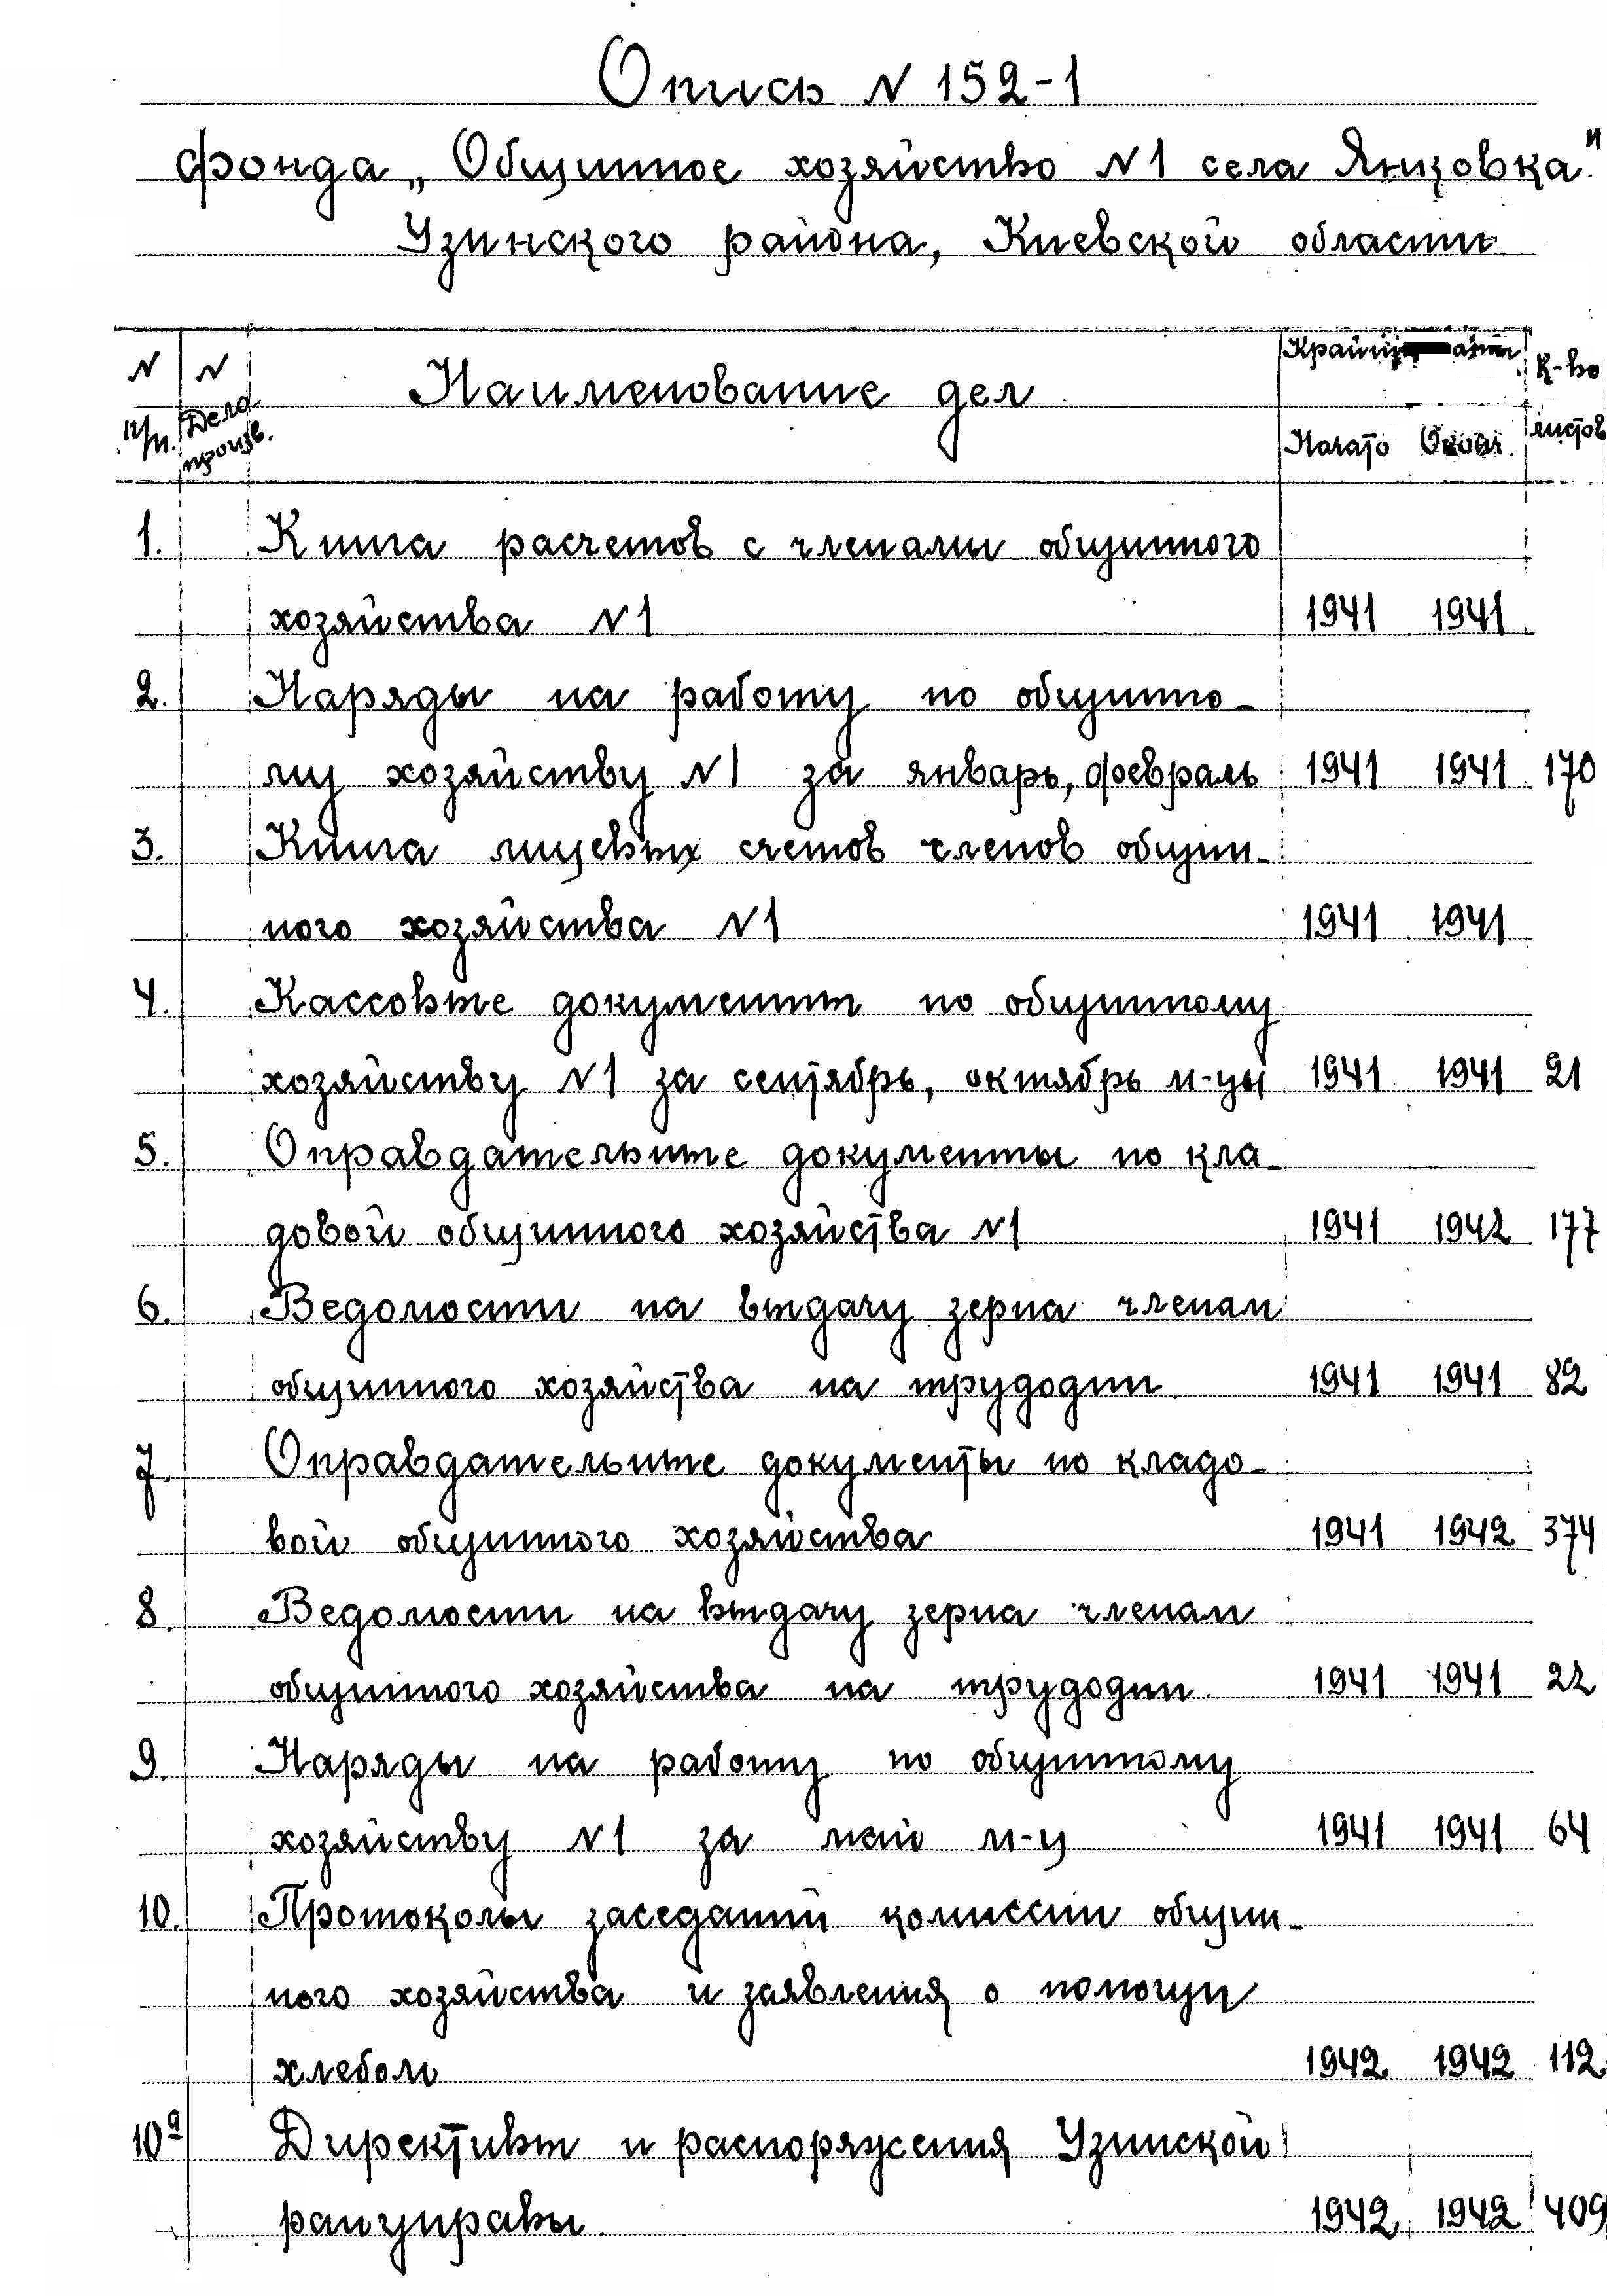 Опись N 152-1
фонда „Общинное хозяйство N1 села Янцовка"
Узинского района, Киевской области
N п/п. N Дела произв. Наименование дел Крайн. даты К-во листов
Начато Оконч.
1. Книга расчетов с членами общинного
хозяйства N1 1941 1941
2. Наряды на работу по общинно-
му хозяйству N1 за январь, февраль 1941 1941 170
3. Книга лицевых счетов членов общин-
ного хозяйства N1 1941 1941
4. Кассовые документы по общинному
хозяйству N1 за сентябрь, октябрь м-цы 1941 1941 21
5. Оправдательные документы по кла-
довой общинного хозяйства N1 1941 1942 177
6. Ведомости на выдачу зерна членам
общинного хозяйства на трудодни. 1941 1941 82
7. Оправдательные документы по кладо-
вой общинного хозяйства 1941 1942 374
8. Ведомости на выдачу зерна членам
общинного хозяйства на трудодни. 1941 1941 22
9. Наряды на работу по общинному
хозяйству N1 за май м-ц 1941 1941 64
10. Протоколы заседаний комиссии общин-
ного хозяйства и заявления о помощи
хлебом 1942 1942 112
10а Директивы и распоряжения Узинской
райуправы. 1942 1942 409